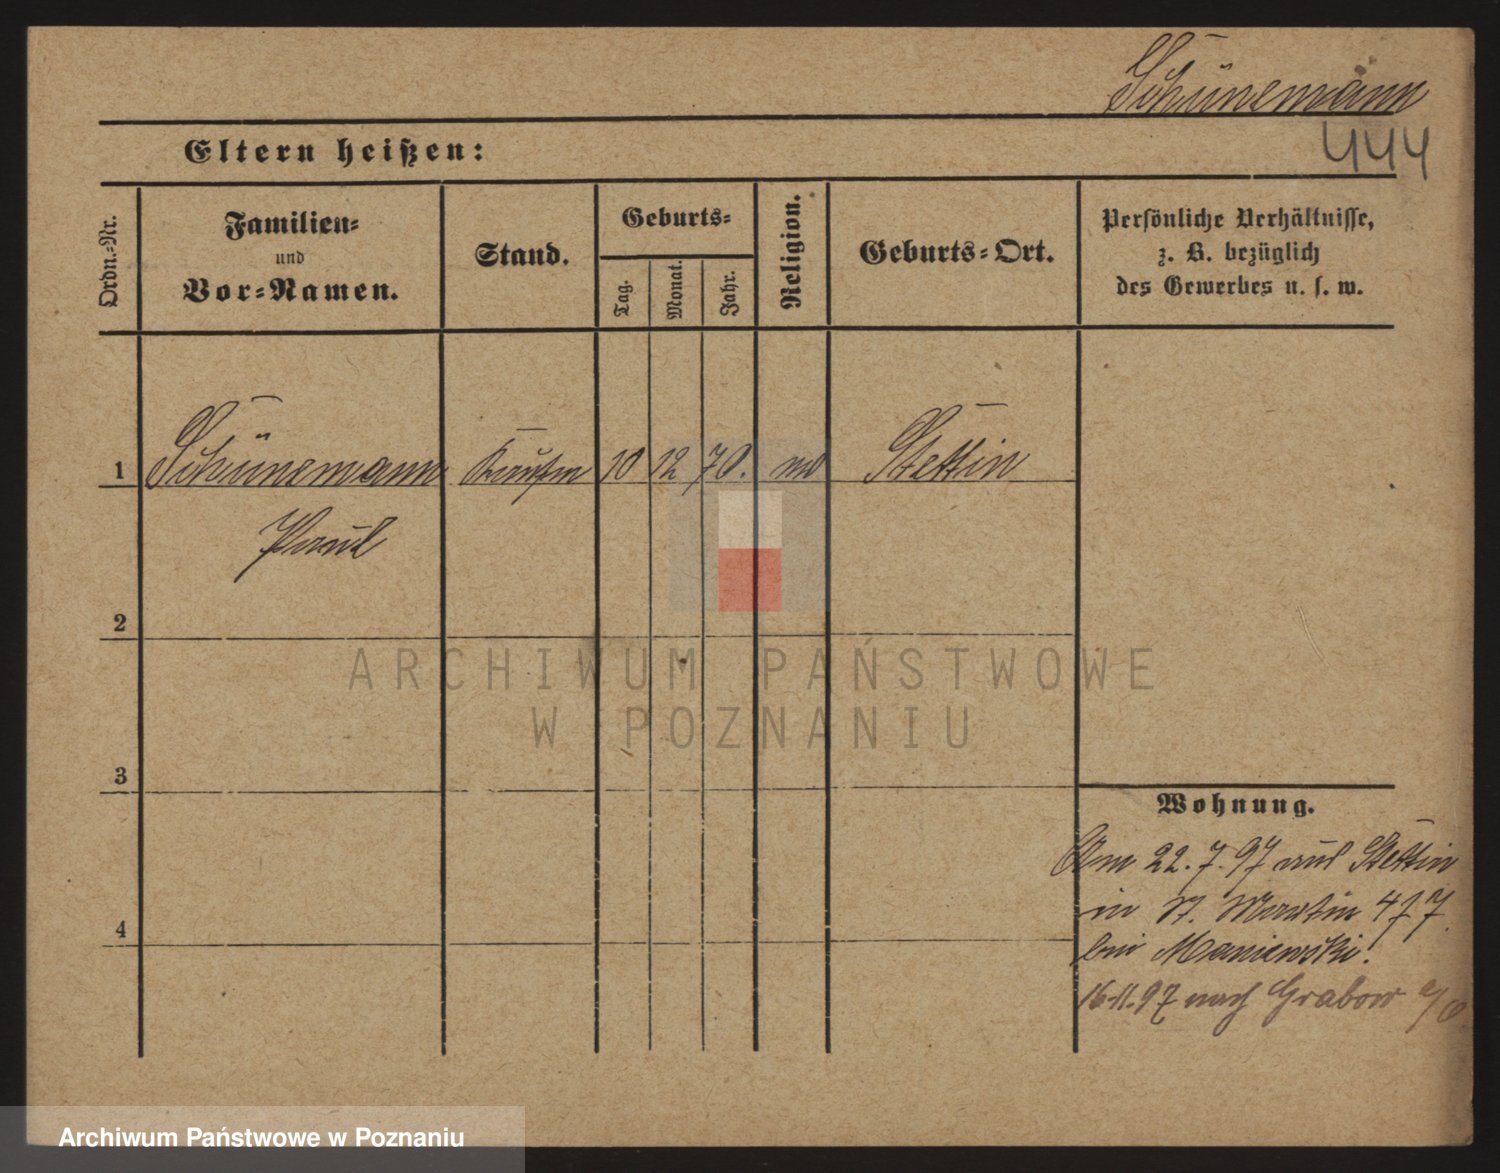 Schünemann
444
Eltern heißen:
Ordn.-Nr.
Familien-
und
Vor-Namen.
Stand.
Geburts-
Tag.
Monat.
Jahr.
Religion.
Geburts-Ort.
Persönliche Verhältnisse,
z. B. bezüglich
des Gewerbes u. s. w.
1 Schünemann Kaufm 10 12 70. Stettin
Paul
2
3
4
Wohnung.
Am 22.7.97 aus Stettin
in St. Martin 47
bei Maniewski.
16.11.97 nach Grabow a/O
ARCHIWUM PAŃSTWOWE
W POZNANIU
Archiwum Państwowe w Poznaniu